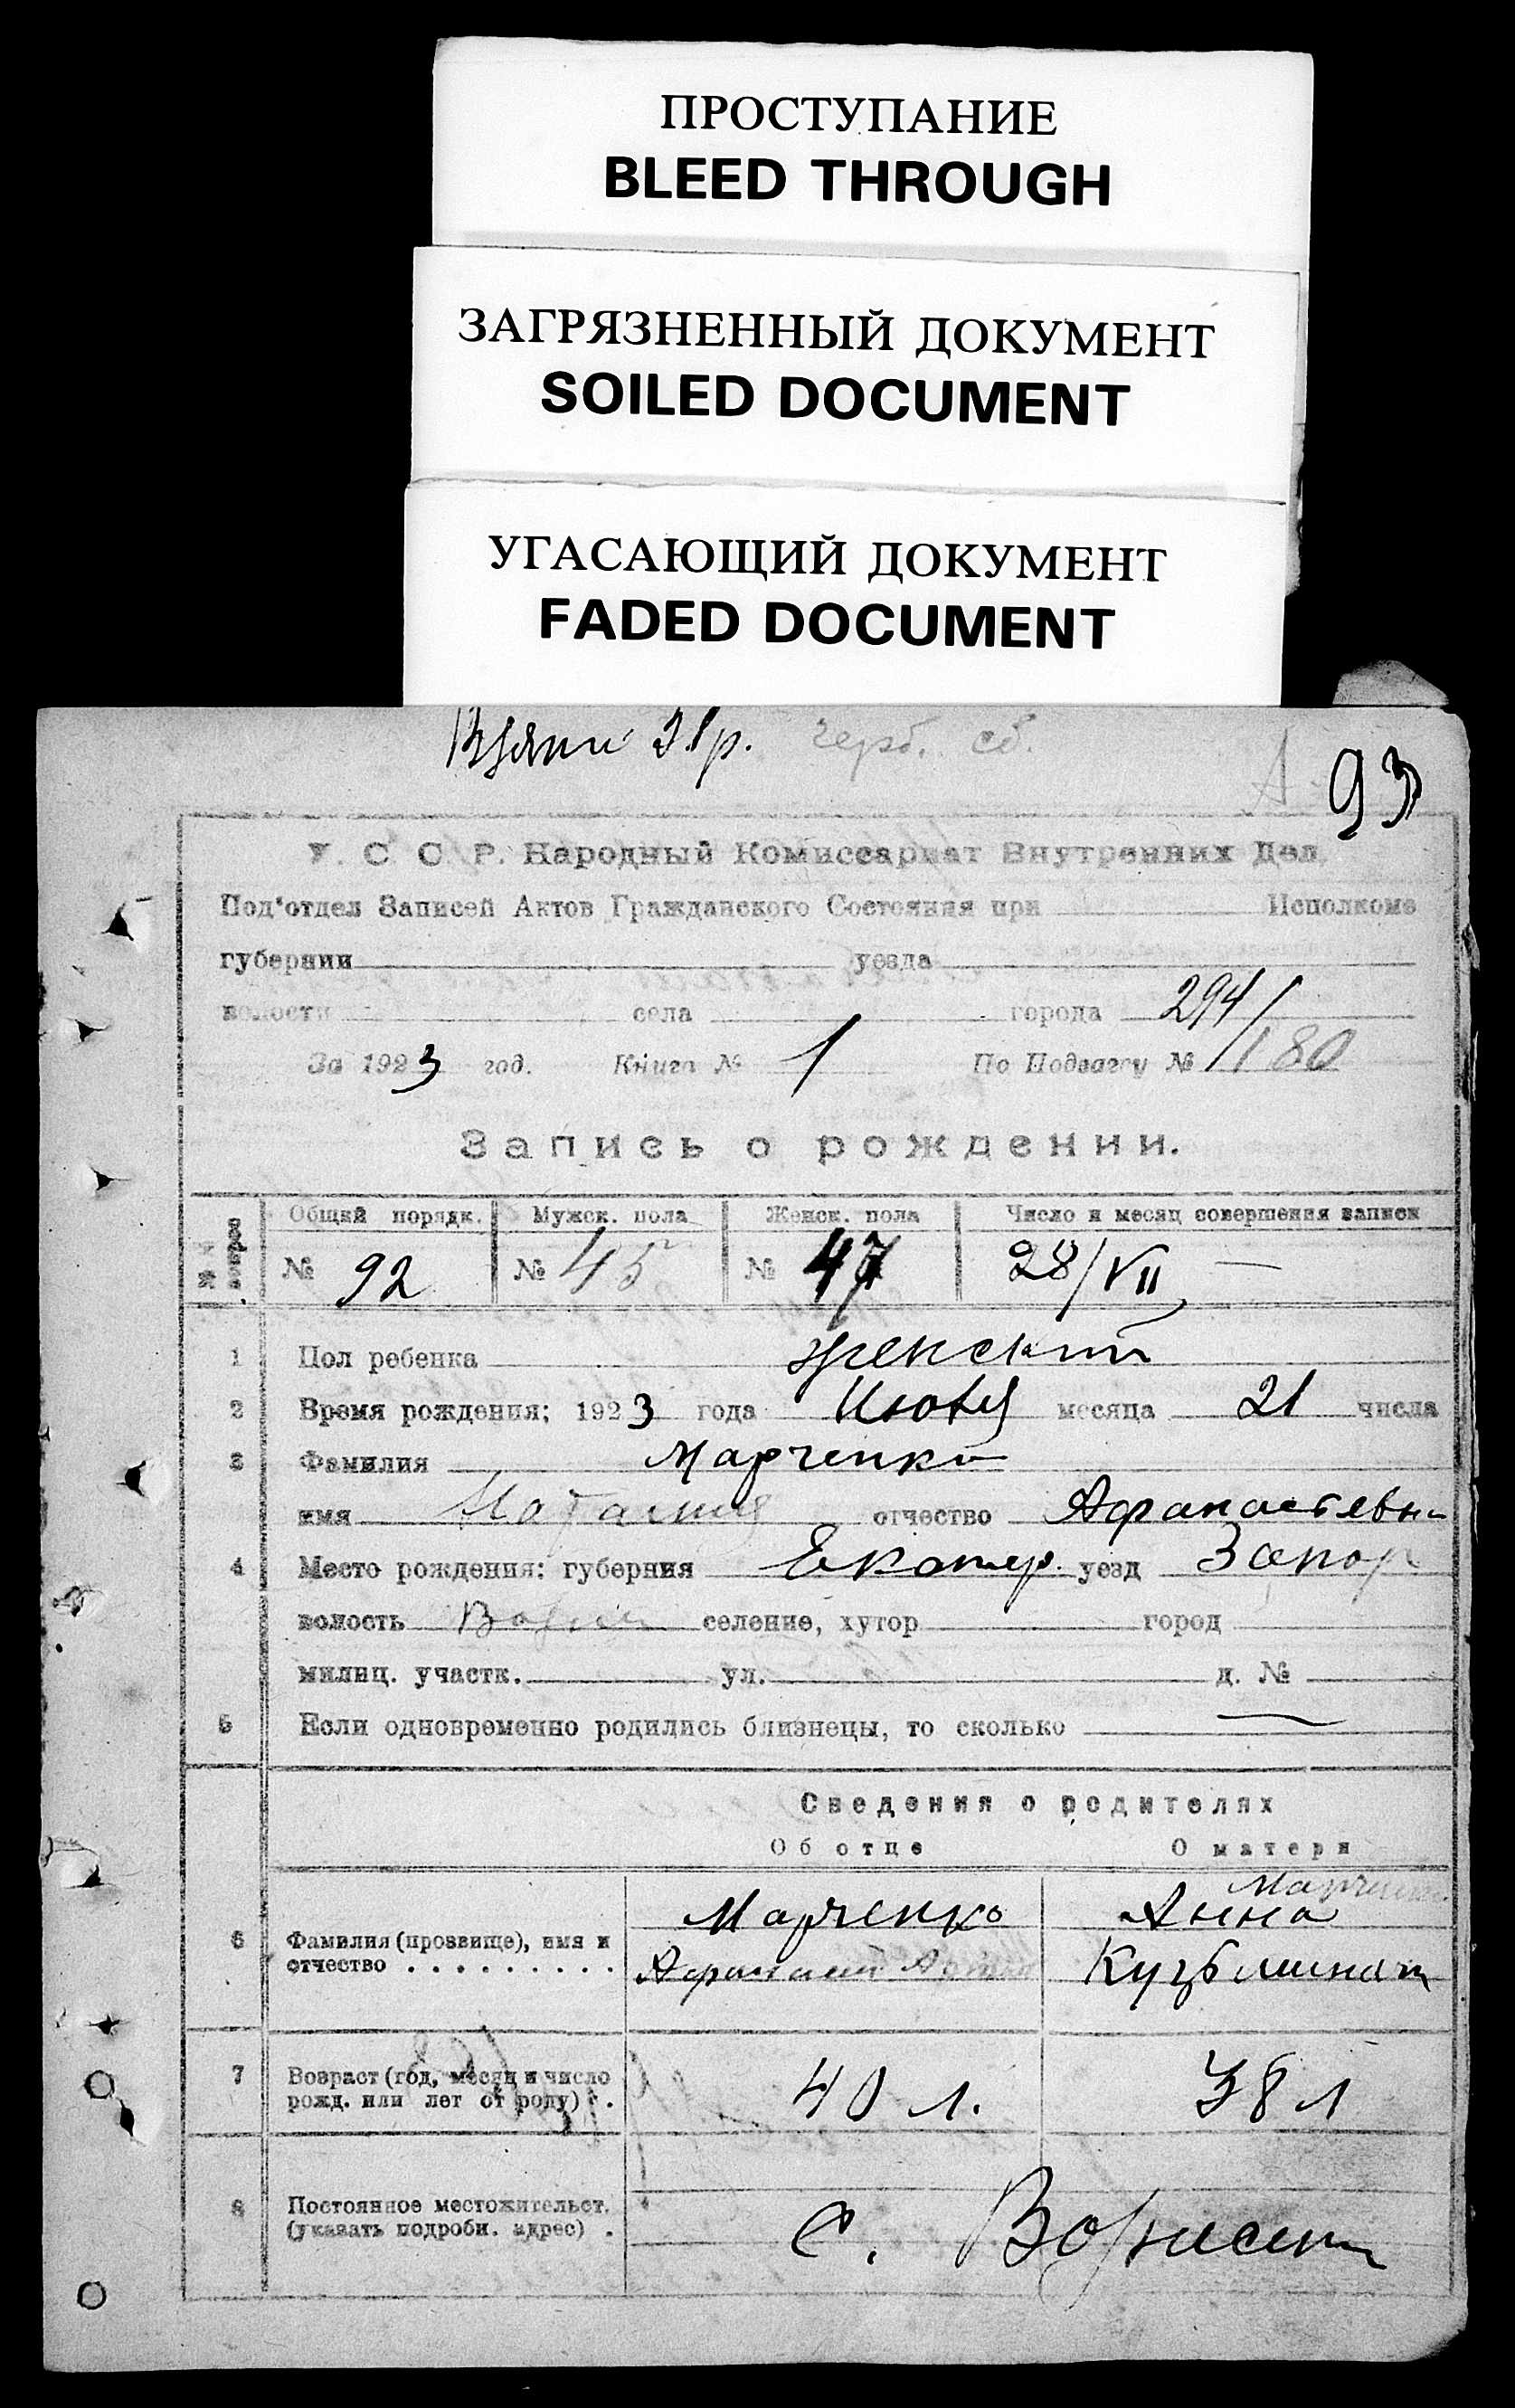 ПРОСТУПАНИЕ
BLEED THROUGH
ЗАГРЯЗНЕННЫЙ ДОКУМЕНТ
SOILED DOCUMENT
УГАСАЮЩИЙ ДОКУМЕНТ
FADED DOCUMENT
93
У. С. С. Р. Народный Комиссариат Внутренних Дел
Под'отдел Записей Актов Гражданского Состояния при Исполкоме
губернии уезда
волости села города 294/
За 1923 год. Книга № 1 По Подвагсу № 180
Запись о рождении.
Общий порядк. Мужск. пола Женск. пола Число и месяц совершения записи
№ 92 № 45 № 47 28/VII
1 Пол ребенка женский
2 Время рождения: 1923 года Июля месяца 21 числа
3 Фамилия Марченко
имя Наталия отчество Афанасьевн
4 Место рождения: губерния Екатер. уезд Запор
волость Возн селение, хутор город
милиц. участк. ул. д. №
5 Если одновременно родились близнецы, то сколько —
Сведения о родителях
Об отце О матери
6 Фамилия (прозвище), имя и отчество Марченко Афанасий Марченко Анна Кузьминат
7 Возраст (год, месяц и число рожд. или лет от роду) 40 л. 38 л
8 Постоянное местожительст. (указать подробн. адрес) с. Вознесен